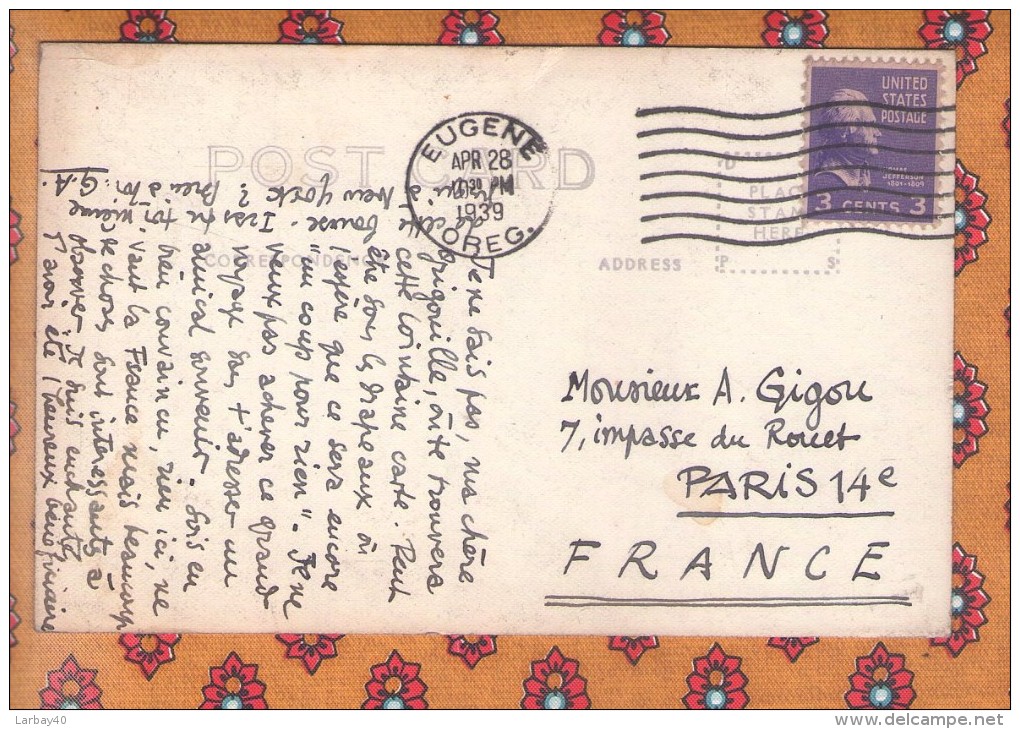 POST CARD
CORRESPONDENCE
ADDRESS
PLACE
STAMP
HERE
P S
EUGENE
APR 28
PM
1939
OREG.
UNITED
STATES
POSTAGE
THOMAS
JEFFERSON
1801-1809
3 CENTS 3
Je ne sais pas, ma chère
Gigouille, où te trouvera
cette lointaine carte. Peut
être sous les drapeaux où
j'espère que ce sera encore
"un coup pour rien". Je ne
veux pas achever ce grand
voyage sans t'adresser un
amical souvenir. Sois en
bien convaincu, rien ici, ne
vaut la France mais beaucoup
de choses sont intéressantes à
observer. Je suis enchanté
d'avoir été l'heureux bénéficiaire
de cette
bourse. Iras tu
à
New York ?
Bien à toi.
G.A.
Monsieur A. Gigou
7, impasse du Rouet
PARIS 14e
FRANCE
Larbay40
www.delcampe.net